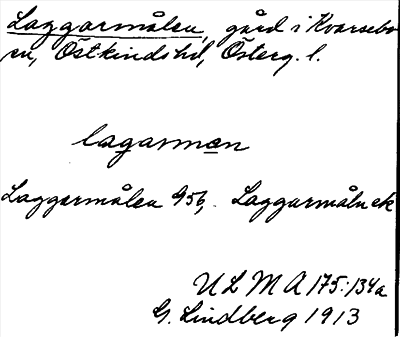 Laggarmålen, gård i Kvarsebo
sn, Östkinds hd, Österg. l.
lagarmon
Laggarmålen 956, Laggarmåln ek
ULMA 175:134a
G. Lindberg 1913